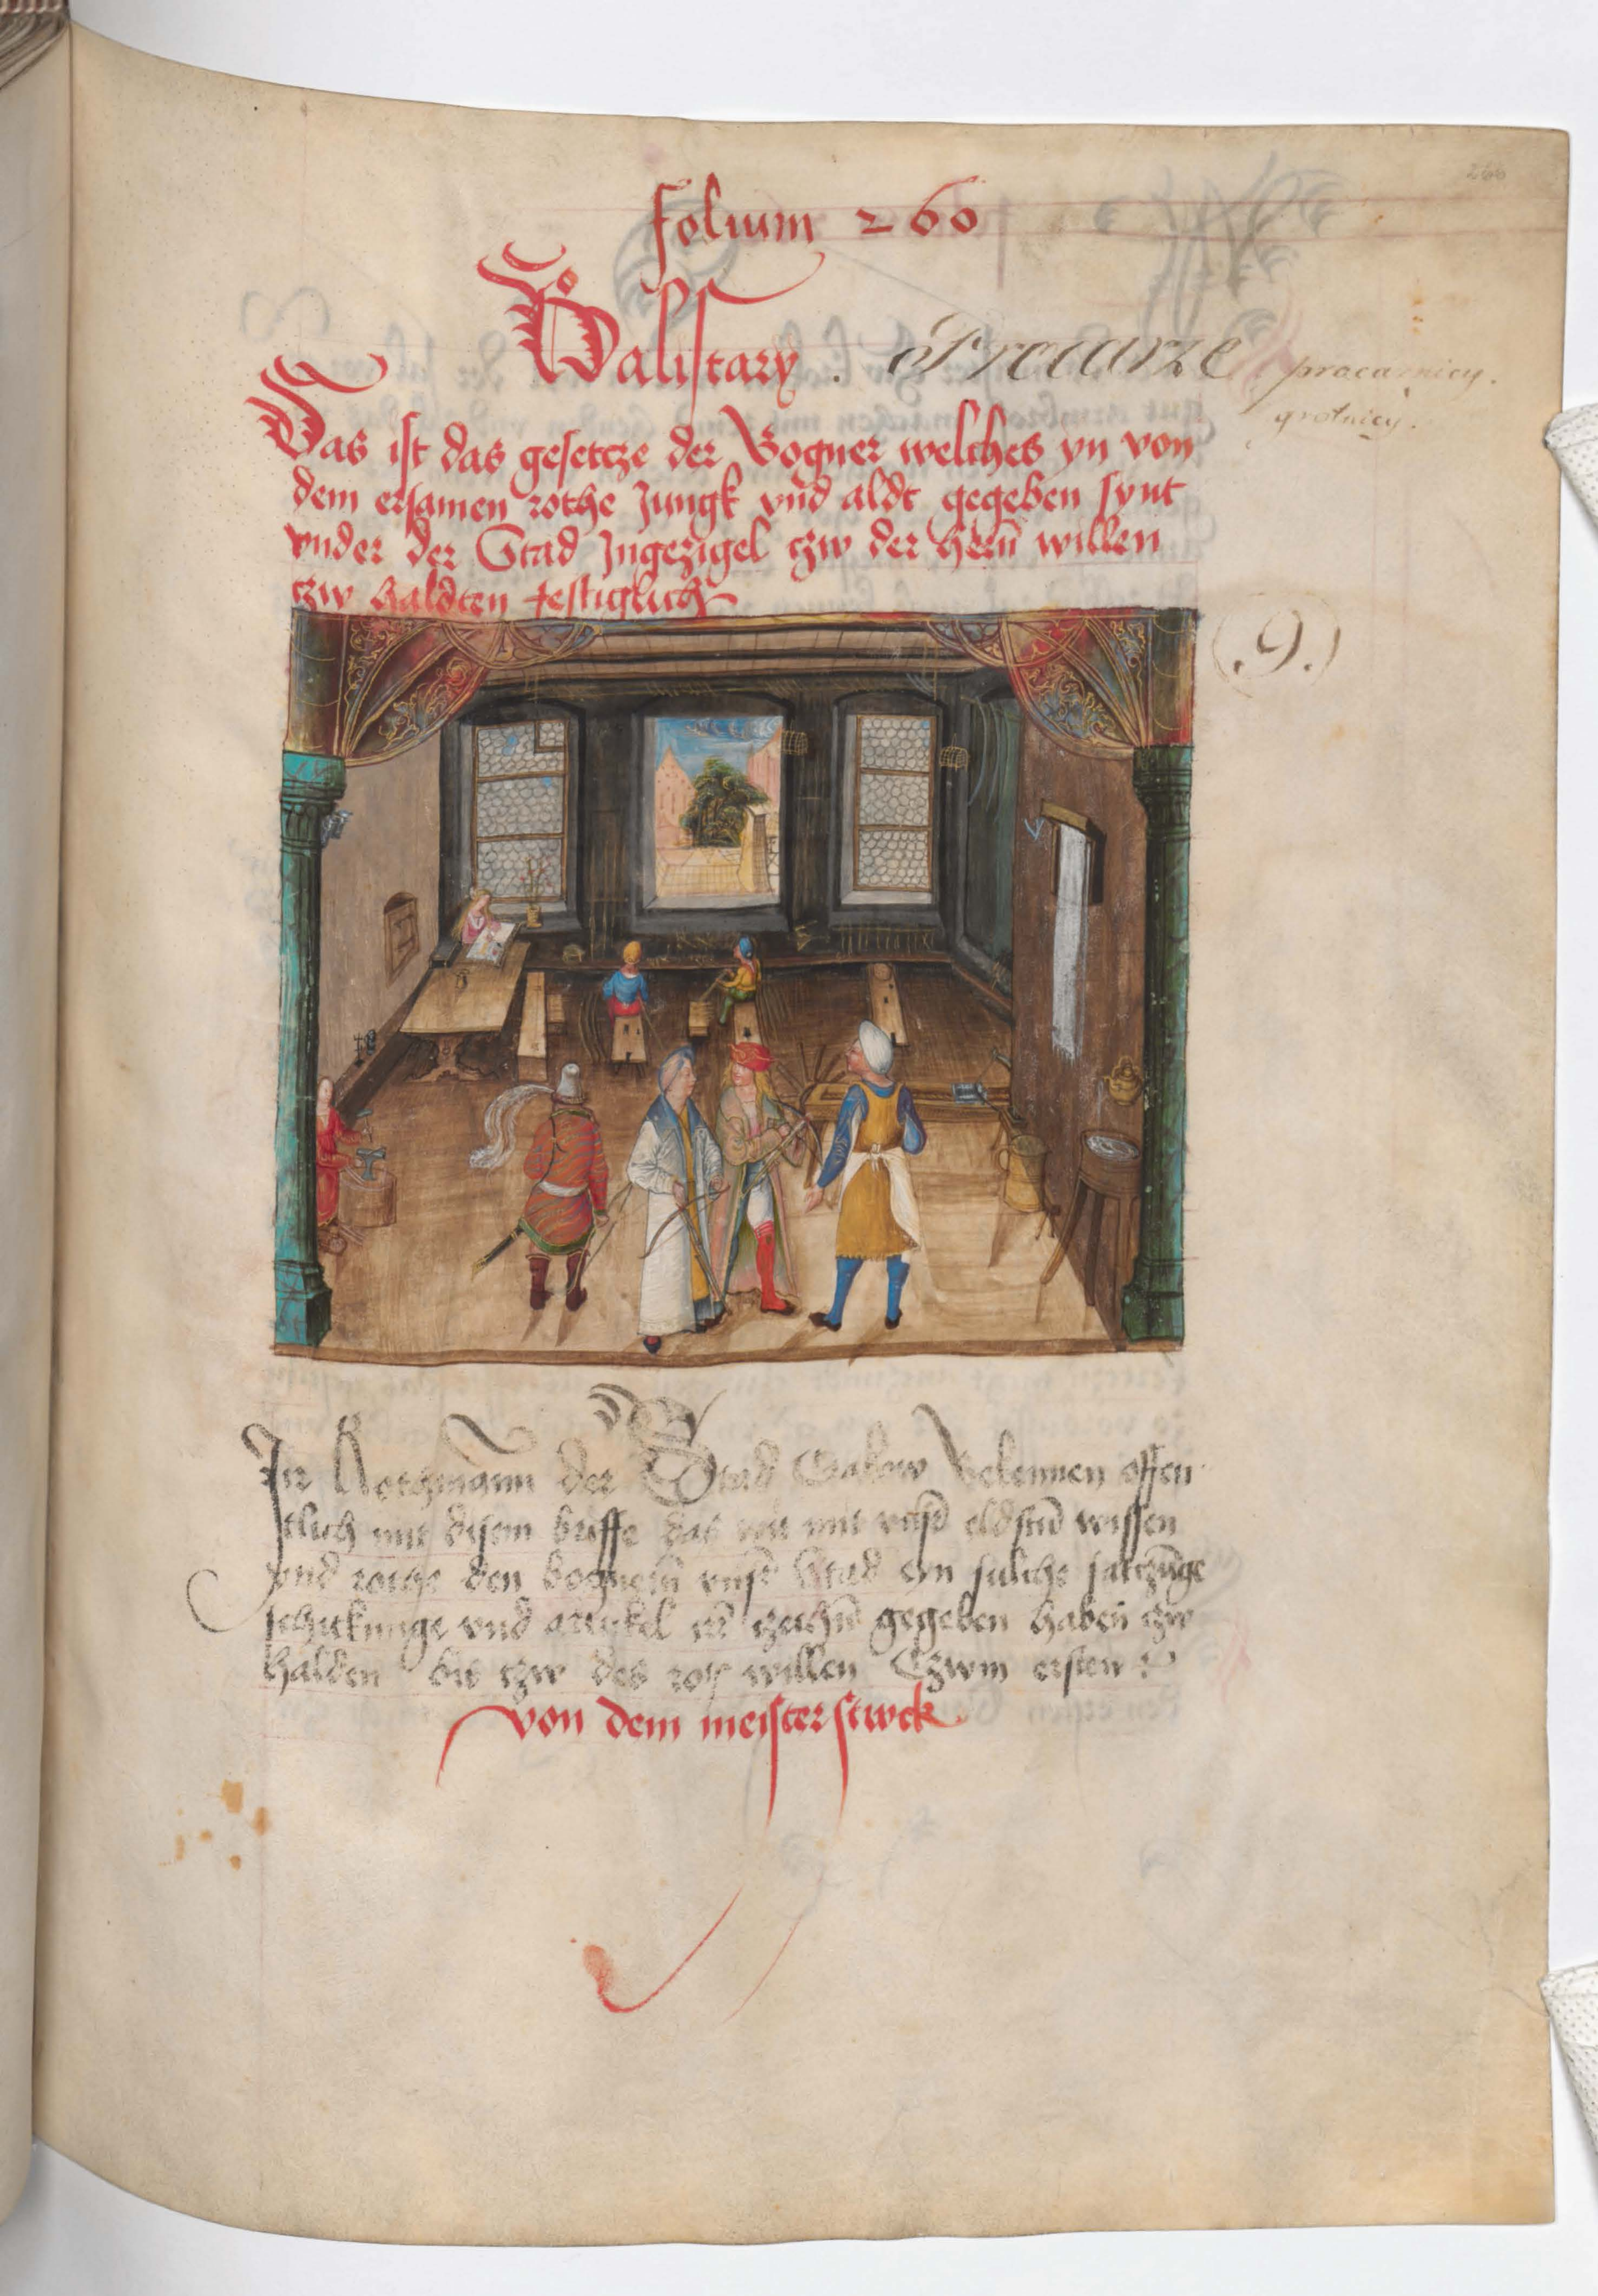 266
folium 260
Balistary . Procarze procarnicy.
grotnicy.
Das ist das gesetcze der Bogner welches yn von
dem ersamen rothe Jungk vnd aldt gegeben synt
vnder der Stad Jngezigel czw der herñ willen
czw haldten festiglich
(.9.)
Rothmann der Stad Crakow Bekennen offen
tlich mit disem briffe das wir mit eldstñ wissen
vnd rothe den bognern Stad eyn sulche satczũge
schickunge vnd artykel gegeben haben czw
halden bis czw des willen Czwm ersten
von dem meisterstwck